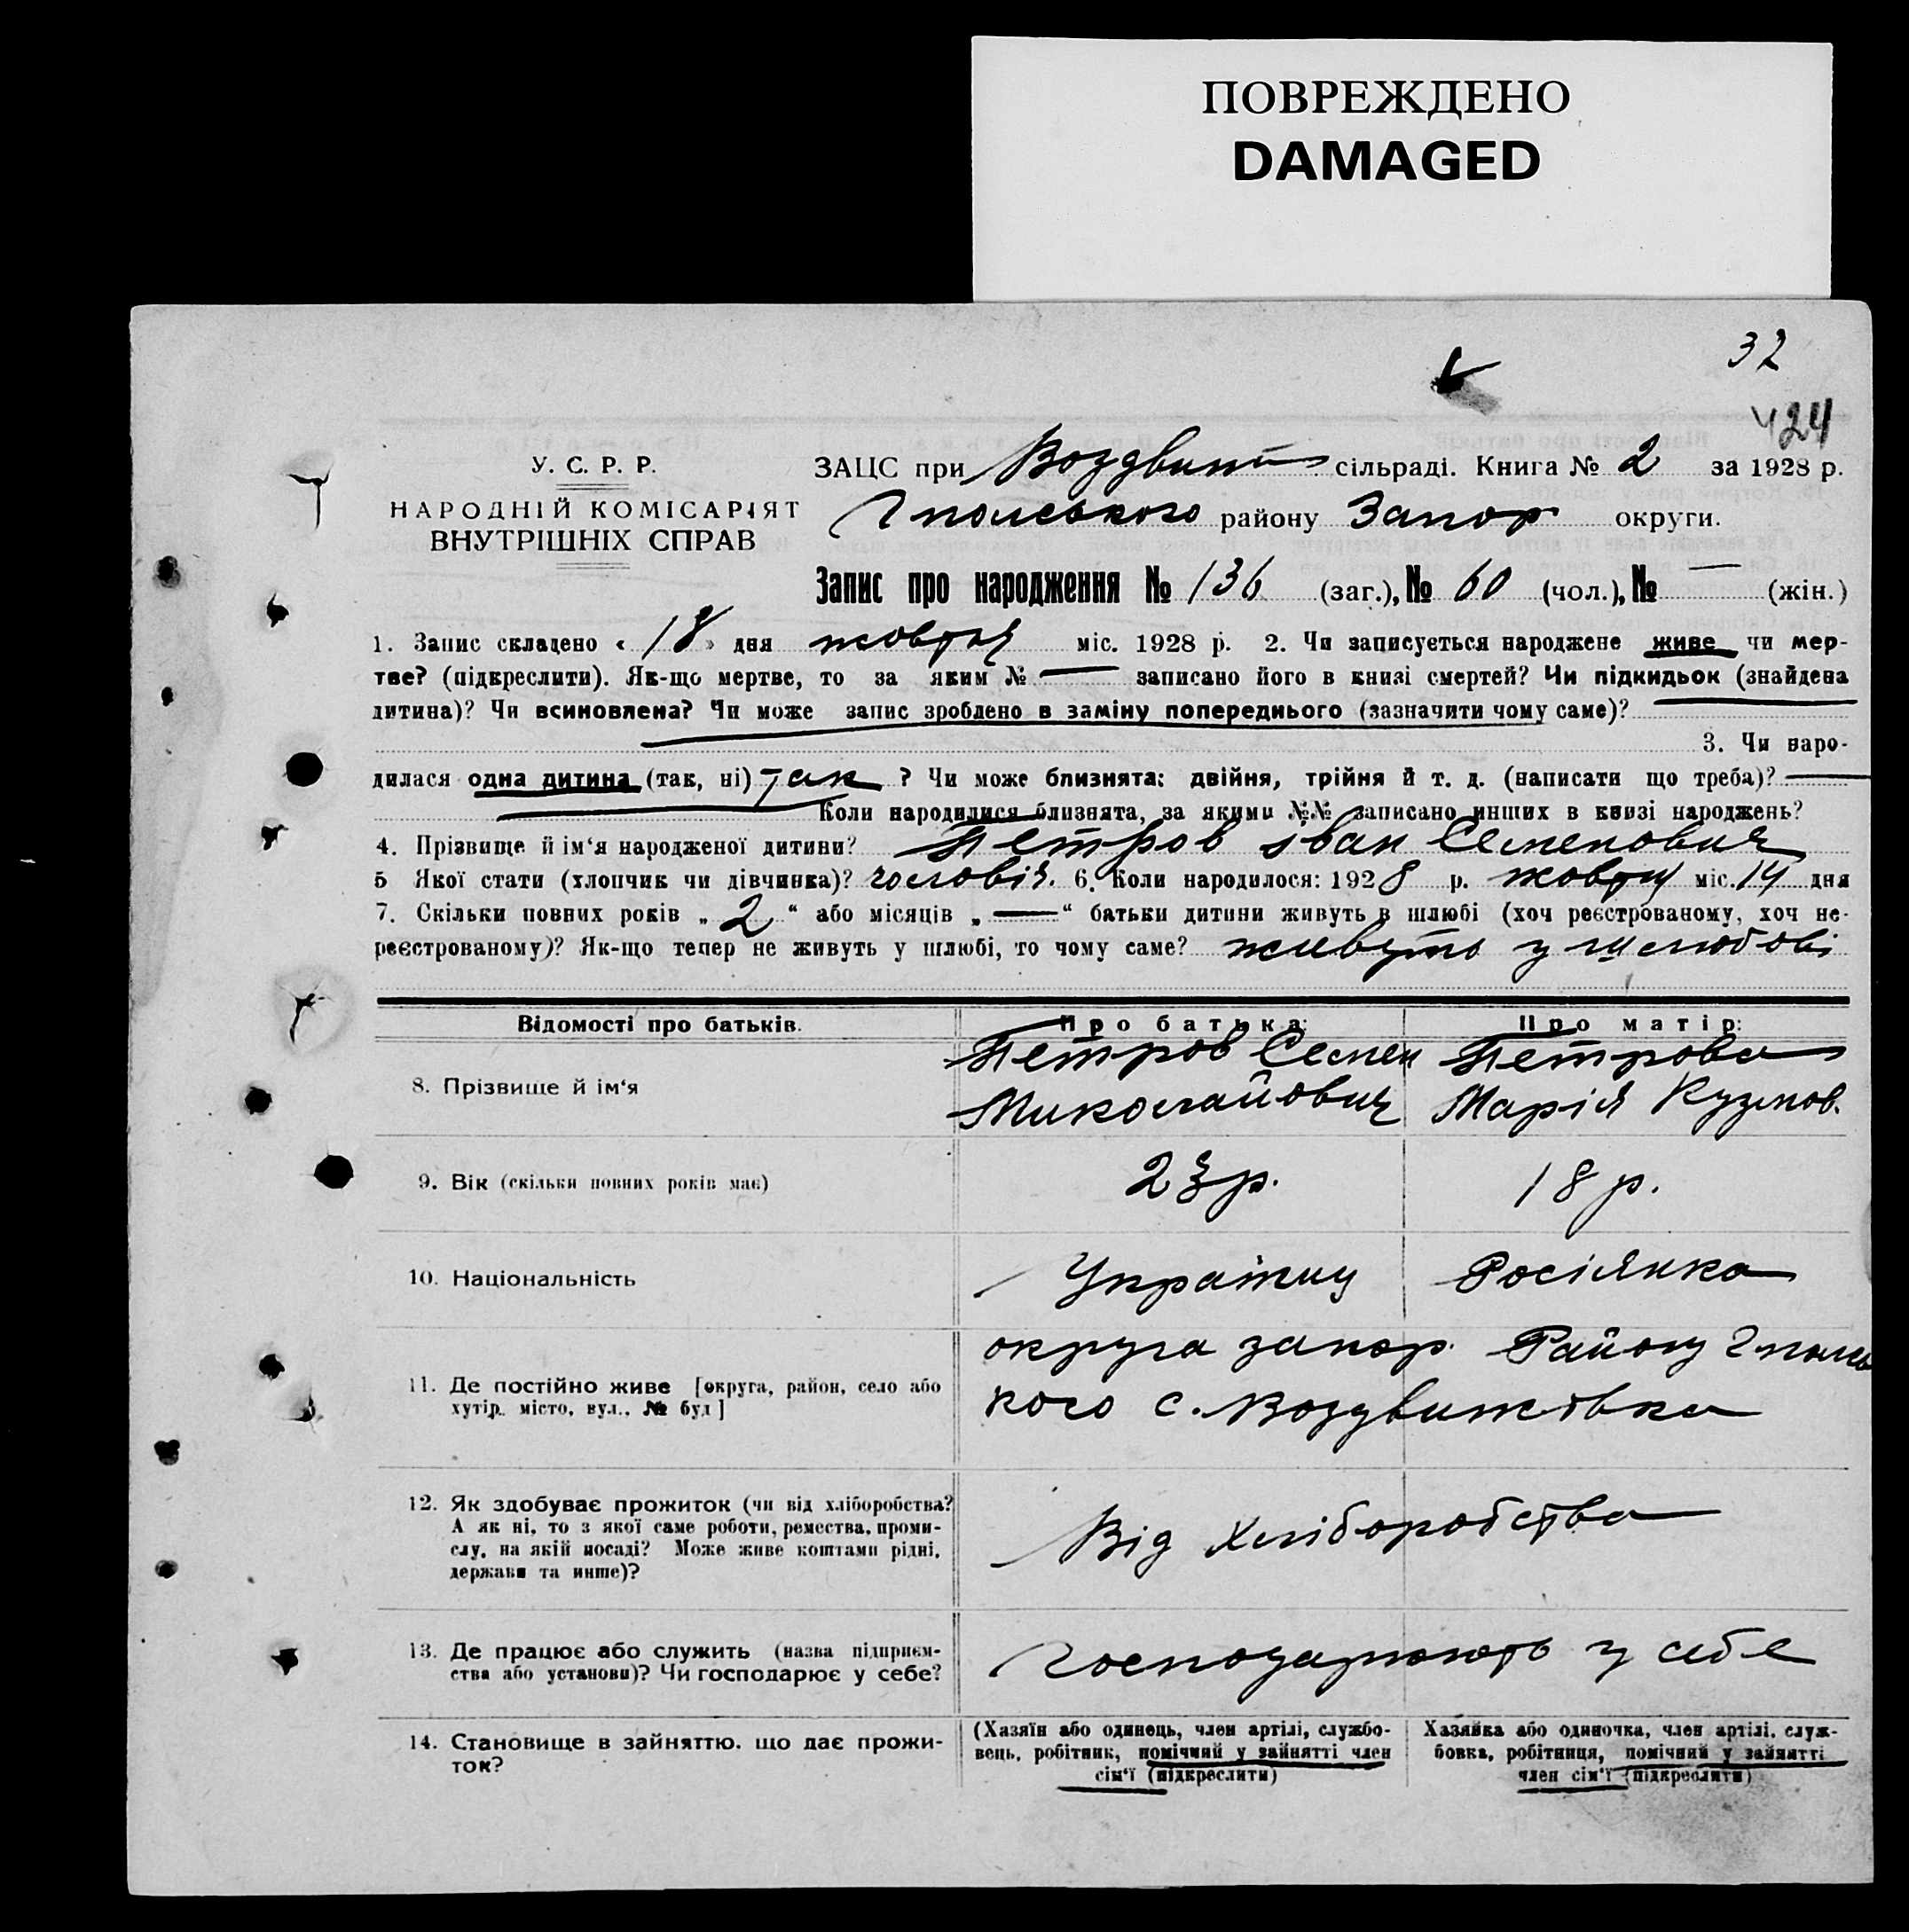 ПОВРЕЖДЕНО
DAMAGED
32
424
У. С. Р. Р.
НАРОДНІЙ КОМІСАРІЯТ
ВНУТРІШНІХ СПРАВ
ЗАЦС при Воздвиж сільраді. Книга № 2 за 1928 р.
Гпольського району Запор округи.
Запис про народження № 136 (заг.), № 60 (чол.), № — (жін.)
1. Запис складено « 18 » дня жовтня міс. 1928 р. 2. Чи записується народжене живе чи мер-
тве? (підкреслити). Як-що мертве, то за яким № — записано його в книзі смертей? Чи підкидьок (знайдена
дитина)? Чи всиновлена? Чи може запис зроблено в заміну попереднього (зазначити чому саме)?
3. Чи наро-
дилася одна дитина (так, ні) так ? Чи може близнята: двійня, трійня й т. д. (написати що треба)? —
Коли народилися близнята, за якими №№ записано инших в книзі народжень?
4. Прізвище й ім‘я народженої дитини? Петров Іван Семенович
5 Якої стати (хлопчик чи дівчинка)? чоловіч. 6. Коли народилося: 1928 р. жовтня міс. 14 дня
7. Скільки повних років „ 2 “ або місяців „ — “ батьки дитини живуть в шлюбі (хоч реєстрованому, хоч не-
реєстрованому)? Як-що тепер не живуть у шлюбі, то чому саме? живуть у шлюбові
Відомості про батьків. Про батька: Про матір:
8. Прізвище й ім‘я Петров Семен Миколайович Петрова Марія Кузмов.
9. Вік (скільки повних років має) 23 р. 18 р.
10. Національність Українц Росіянка
11. Де постійно живе [округа, район, село або
хутір, місто, вул., № буд]
округа запор. Району Гполь
кого с. Воздвижівка
12. Як здобуває прожиток (чи від хліборобства?
А як ні, то з якої саме роботи, ремества, проми-
слу, на якій посаді? Може живе коштами рідні,
держави та инше)?
Від Хліборобства
13. Де працює або служить (назва підприєм-
ства або установи)? Чи господарює у себе?
Господарюють у себе
14. Становище в зайняттю, що дає прожи-
ток?
(Хазяїн або одинець, член артілі, службо-
вець, робітник, помічний у зайнятті член
сім‘ї (підкреслити)
Хазяйка або одиночка, член артілі, служ-
бовка, робітниця, помічний у зайнятті
член сім‘ї (підкреслити)